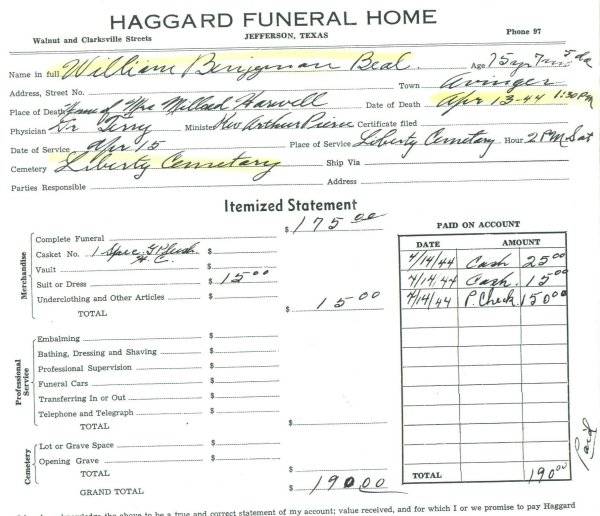 HAGGARD FUNERAL HOME
Walnut and Clarksville Streets JEFFERSON, TEXAS Phone 97
Name in full William Binjyman Beal Age 75 yr 7 m 5 da
Address, Street No. Town Avinger
Place of Death Home of Mrs Millard Harvell Date of Death Apr 13-44 1:30 PM
Physician Dr Terry Minister Rev Arthur Pierce Certificate filed
Date of Service Apr 15 Place of Service Liberty Cemetary Hour 2 PM Sat
Cemetery Liberty Cemetary Ship Via
Parties Responsible Address
Itemized Statement
Merchandise
Complete Funeral $ 175 00
Casket No. 1 Spec. G Plush H.C. $
Vault $
Suit or Dress $ 15 00
Underclothing and Other Articles $
TOTAL $ 15 00
Professional Service
Embalming $
Bathing, Dressing and Shaving $
Professional Supervision $
Funeral Cars $
Transferring In or Out $
Telephone and Telegraph $
TOTAL $
Cemetery
Lot or Grave Space $
Opening Grave $
TOTAL $
GRAND TOTAL $ 190.00
PAID ON ACCOUNT
DATE AMOUNT
4/14/44 Cash 25 00
4/14/44 Cash 15 00
4/14/44 P. Check 150 00
TOTAL 190 00
Paid
acknowledge the above to be a true and correct statement of my account; value received, and for which I or we promise to pay Haggard